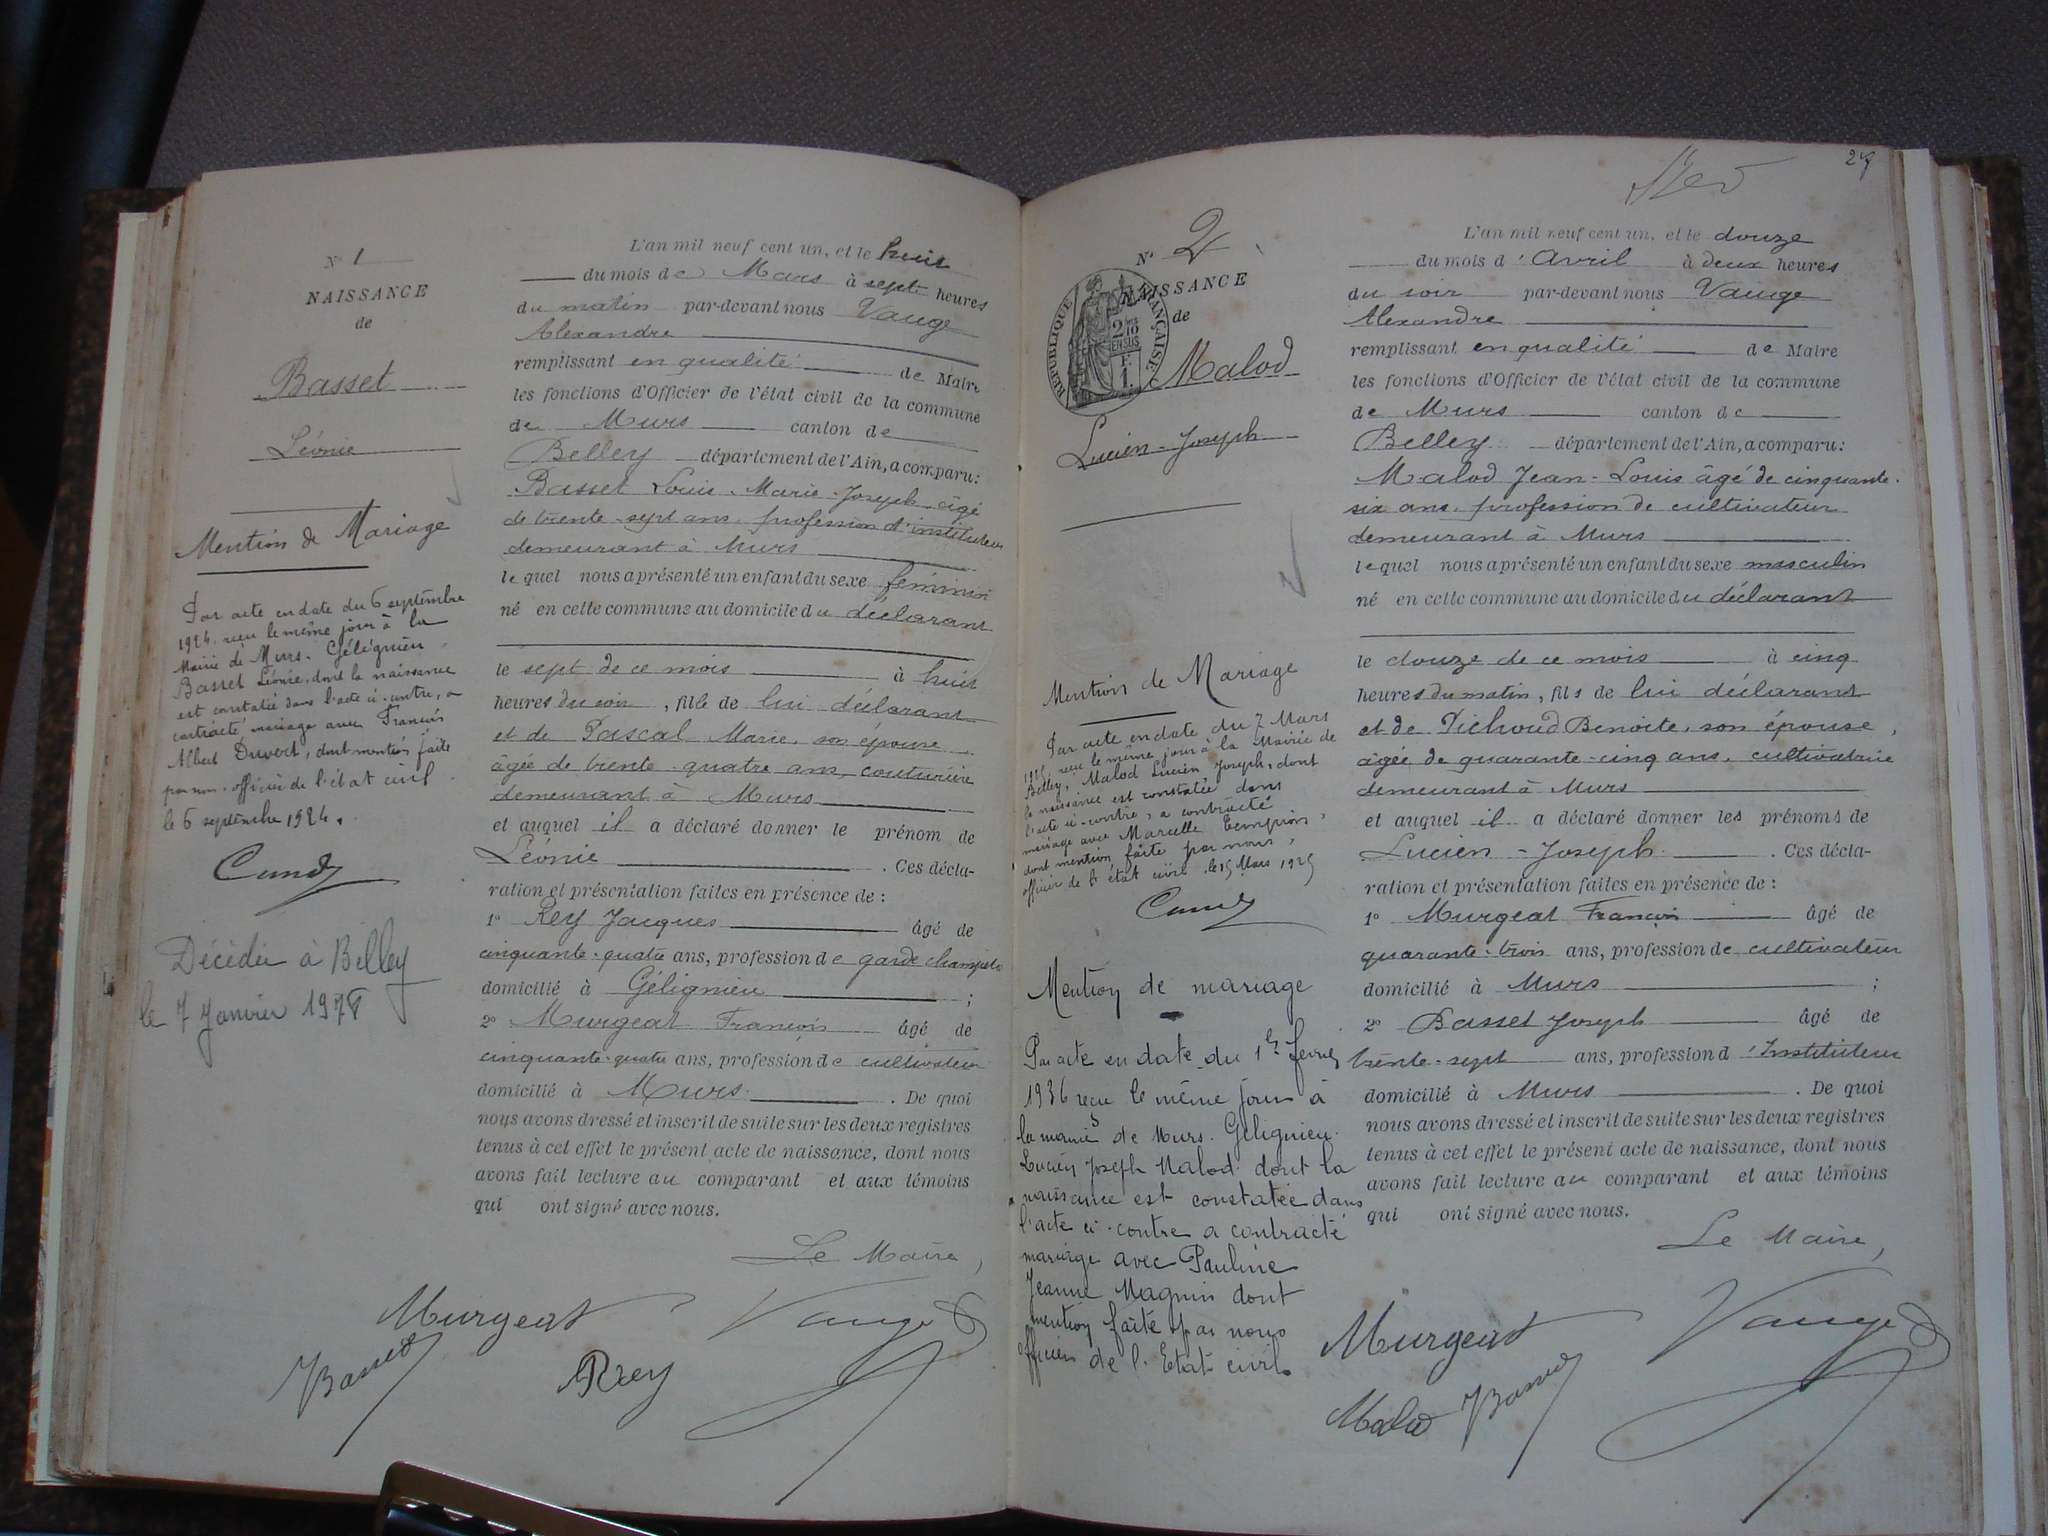 N° 1
NAISSANCE
de
Basset
Léonie
Mention de Mariage
Par acte en date du 6 septembre
1924, reçu le même jour à la
Mairie de Murs-Gélignieu,
Basset Léonie, dont la naissance
est constatée dans l'acte ci-contre, a
contracté mariage avec Francois
Albert Duvert, dont mention faite
par nous, officier de l'état civil
le 6 septembre 1924.
Décédée à Belley
le 7 Janvier 1978
L'an mil neuf cent un, et le huit
du mois de Mars à sept heures
du matin par-devant nous Vauge
Alexandre
remplissant en qualité de Maire
les fonctions d'Officier de l'état civil de la commune
de Murs canton de
Belley département de l'Ain, a comparu:
Basset Louis-Marie-Joseph âgé
de trente-sept ans, profession d'instituteur
demeurant à Murs
lequel nous a présenté un enfant du sexe féminin
né en cette commune au domicile du déclarant
le sept de ce mois à huit
heures du soir, fille de lui déclarant
et de Pascal Marie, son épouse
âgée de trente-quatre ans, couturière
demeurant à Murs
et auquel il a déclaré donner le prénom de
Léonie. Ces décla-
ration et présentation faites en présence de :
1° Rey Jacques âgé de
cinquante-quatre ans, profession de garde champêtre
domicilié à Gélignieu ;
2° Murgeat Francois âgé de
cinquante-quatre ans, profession de cultivateur
domicilié à Murs. De quoi
nous avons dressé et inscrit de suite sur les deux registres
tenus à cet effet le présent acte de naissance, dont nous
avons fait lecture au comparant et aux témoins
qui ont signé avec nous.
Le Maire,
Murgeat Vauge
Basset Rey
27
N° 2
NAISSANCE
de
RÉPUBLIQUE FRANÇAISE
Malod
Lucien-Joseph
Mention de Mariage
Par acte en date du 7 Mars
1925, reçu le même jour à la Mairie de
Belley, Malod Lucien Joseph, dont
la naissance est constatée dans
l'acte ci-contre, a contracté
mariage avec Marcelle
dont mention faite par nous,
officier de l'état civil le 15 Mars 1925
Mention de mariage
Par acte en date du 1er fevrier
1936 reçu le même jour à
la mairie de Murs-Gélignieu
Lucien Joseph Malod dont la
naissance est constatée dans
l'acte ci-contre a contracté
mariage avec Pauline
Jeanne Magnin dont
mention faite par nous
officier de l'Etat civil
L'an mil neuf cent un, et le douze
du mois d'Avril à deux heures
du soir par-devant nous Vauge
Alexandre
remplissant en qualité de Maire
les fonctions d'Officier de l'état civil de la commune
de Murs canton de
Belley département de l'Ain, a comparu:
Malod Jean-Louis âgé de cinquante-
six ans, profession de cultivateur
demeurant à Murs
lequel nous a présenté un enfant du sexe masculin
né en cette commune au domicile du déclarant
le douze de ce mois à cinq
heures du matin, fils de lui déclarant
et de Pichoud Benoite, son épouse,
âgée de quarante-cinq ans, cultivatrice
demeurant à Murs
et auquel il a déclaré donner les prénoms de
Lucien-Joseph. Ces décla-
ration et présentation faites en présence de :
1° Murgeat Francois âgé de
quarante-trois ans, profession de cultivateur
domicilié à Murs ;
2° Basset Joseph âgé de
trente-sept ans, profession d'Instituteur
domicilié à Murs. De quoi
nous avons dressé et inscrit de suite sur les deux registres
tenus à cet effet le présent acte de naissance, dont nous
avons fait lecture au comparant et aux témoins
qui ont signé avec nous.
Le Maire,
Murgeat Vauge
Malod Basset